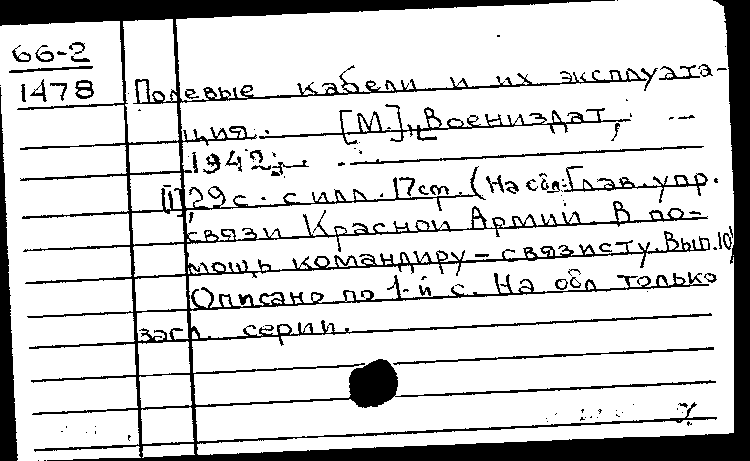 66-2
1478
Полевые кабели и их эксплуата-
ция. [М.], Воениздат,
1942.
[1], 29 с. с илл. 17 см. (На обл.: Глав. упр.
связи Красной Армии. В по-
мощь командиру-связисту. Вып. 10)
Описано по 1-й с. На обл только
загл. серии.